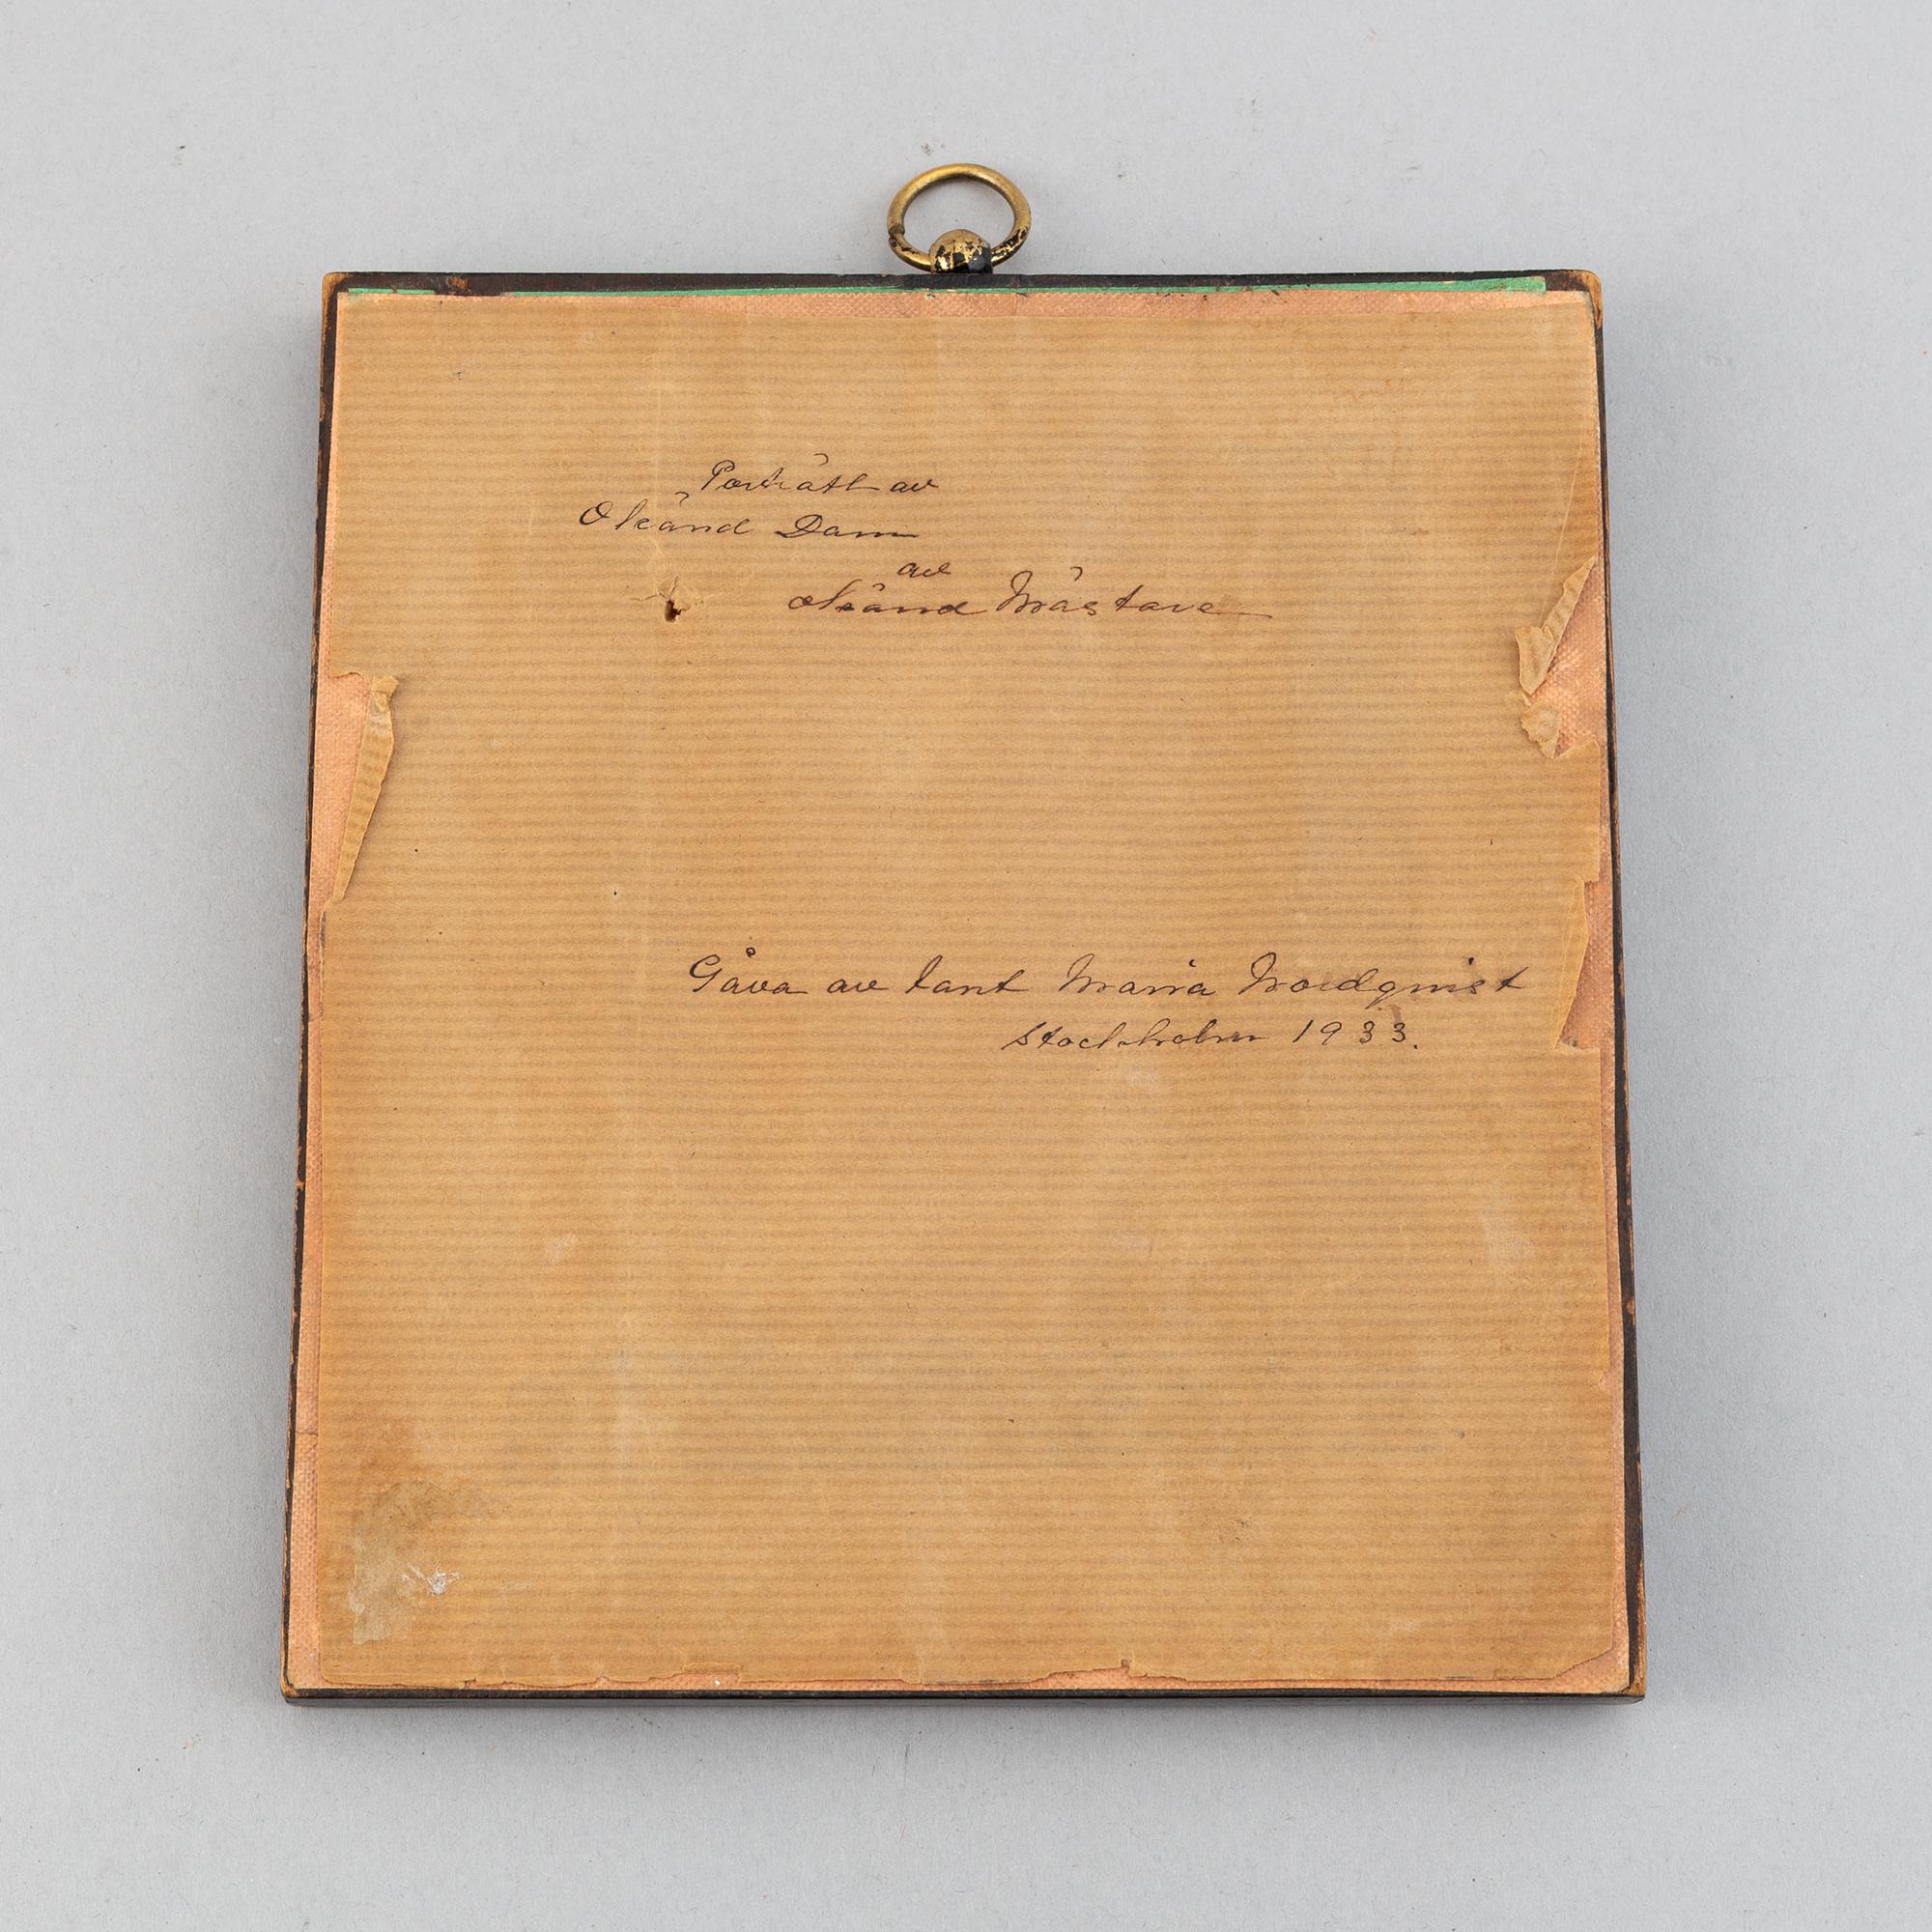 Porträtt av
Okänd Dam
av
okänd Mästare
Gåva av tant Maria Nordqvist
Stockholm 1933.